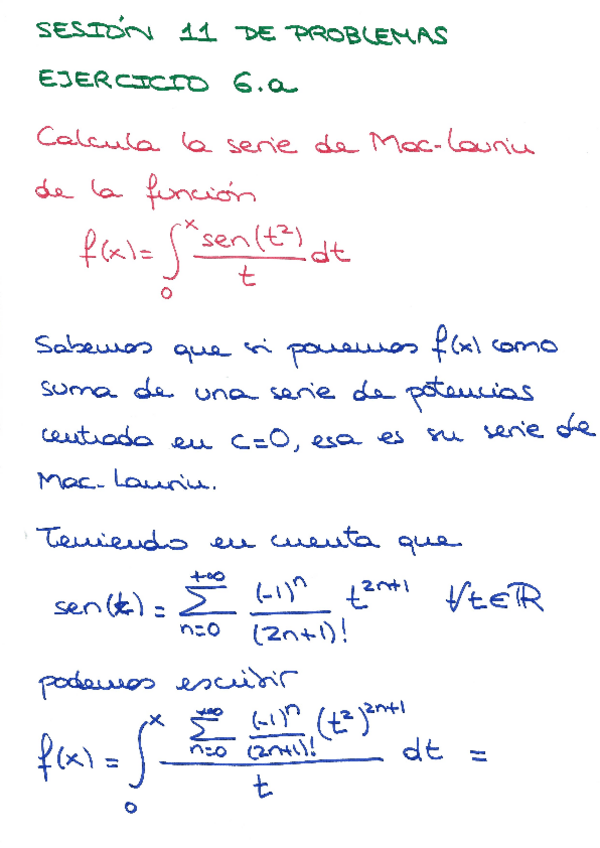 SESIÓN 11 DE PROBLEMAS
EJERCICIO 6.a
Calcula la serie de Mac-Laurin
de la función
f(x) = ∫₀ˣ sen(t²)/t dt
Sabemos que si ponemos f(x) como
suma de una serie de potencias
centrada en c=0, esa es su serie de
Mac-Laurin.
Teniendo en cuenta que
sen(t) = ∑_{n=0}^{+∞} (-1)ⁿ/(2n+1)! t^{2n+1} ∀t∈ℝ
podemos escribir
f(x) = ∫₀ˣ (∑_{n=0}^{+∞} (-1)ⁿ/(2n+1)! (t²)^{2n+1})/t dt =